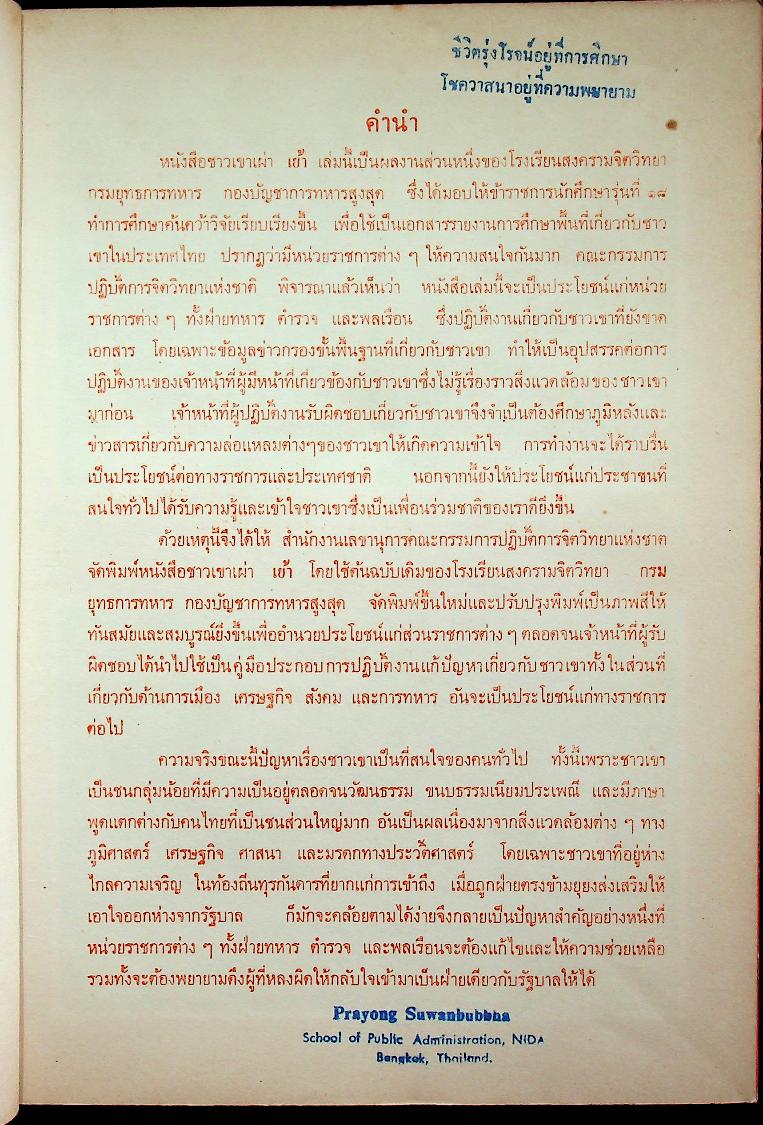 ชีวิตรุ่งโรจน์อยู่ที่การศึกษา
โชควาสนาอยู่ที่ความพยายาม
คำนำ
หนังสือชาวเขาเผ่า เย้า เล่มนี้เป็นผลงานส่วนหนึ่งของโรงเรียนสงครามจิตวิทยา
กรมยุทธการทหาร กองบัญชาการทหารสูงสุด ซึ่งได้มอบให้ข้าราชการนักศึกษารุ่นที่ ๑๘
ทำการศึกษาค้นคว้าวิจัยเรียบเรียงขึ้น เพื่อใช้เป็นเอกสารรายงานการศึกษาพื้นที่เกี่ยวกับชาว
เขาในประเทศไทย ปรากฏว่ามีหน่วยราชการต่าง ๆ ให้ความสนใจกันมาก คณะกรรมการ
ปฏิบัติการจิตวิทยาแห่งชาติ พิจารณาแล้วเห็นว่า หนังสือเล่มนี้จะเป็นประโยชน์แก่หน่วย
ราชการต่าง ๆ ทั้งฝ่ายทหาร ตำรวจ และพลเรือน ซึ่งปฏิบัติงานเกี่ยวกับชาวเขาที่ยังขาด
เอกสาร โดยเฉพาะข้อมูลข่าวกรองขั้นพื้นฐานที่เกี่ยวกับชาวเขา ทำให้เป็นอุปสรรคต่อการ
ปฏิบัติงานของเจ้าหน้าที่ผู้มีหน้าที่เกี่ยวข้องกับชาวเขาซึ่งไม่รู้เรื่องราวสิ่งแวดล้อมของชาวเขา
มาก่อน เจ้าหน้าที่ผู้ปฏิบัติงานรับผิดชอบเกี่ยวกับชาวเขาจึงจำเป็นต้องศึกษาภูมิหลังและ
ข่าวสารเกี่ยวกับความล่อแหลมต่างๆของชาวเขาให้เกิดความเข้าใจ การทำงานจะได้ราบรื่น
เป็นประโยชน์ต่อทางราชการและประเทศชาติ นอกจากนี้ยังให้ประโยชน์แก่ประชาชนที่
สนใจทั่วไปได้รับความรู้และเข้าใจชาวเขาซึ่งเป็นเพื่อนร่วมชาติของเราดียิ่งขึ้น
ด้วยเหตุนี้จึงได้ให้ สำนักงานเลขานุการคณะกรรมการปฏิบัติการจิตวิทยาแห่งชาติ
จัดพิมพ์หนังสือชาวเขาเผ่า เย้า โดยใช้ต้นฉบับเดิมของโรงเรียนสงครามจิตวิทยา กรม
ยุทธการทหาร กองบัญชาการทหารสูงสุด จัดพิมพ์ขึ้นใหม่และปรับปรุงพิมพ์เป็นภาพสีให้
ทันสมัยและสมบูรณ์ยิ่งขึ้นเพื่ออำนวยประโยชน์แก่ส่วนราชการต่าง ๆ ตลอดจนเจ้าหน้าที่ผู้รับ
ผิดชอบได้นำไปใช้เป็นคู่มือประกอบการปฏิบัติงานแก้ปัญหาเกี่ยวกับชาวเขาทั้งในส่วนที่
เกี่ยวกับด้านการเมือง เศรษฐกิจ สังคม และการทหาร อันจะเป็นประโยชน์แก่ทางราชการ
ต่อไป
ความจริงขณะนี้ปัญหาเรื่องชาวเขาเป็นที่สนใจของคนทั่วไป ทั้งนี้เพราะชาวเขา
เป็นชนกลุ่มน้อยที่มีความเป็นอยู่ตลอดจนวัฒนธรรม ขนบธรรมเนียมประเพณี และมีภาษา
พูดแตกต่างกับคนไทยที่เป็นชนส่วนใหญ่มาก อันเป็นผลเนื่องมาจากสิ่งแวดล้อมต่าง ๆ ทาง
ภูมิศาสตร์ เศรษฐกิจ ศาสนา และมรดกทางประวัติศาสตร์ โดยเฉพาะชาวเขาที่อยู่ห่าง
ไกลความเจริญ ในท้องถิ่นทุรกันดารที่ยากแก่การเข้าถึง เมื่อถูกฝ่ายตรงข้ามยุยงส่งเสริมให้
เอาใจออกห่างจากรัฐบาล ก็มักจะคล้อยตามได้ง่ายจึงกลายเป็นปัญหาสำคัญอย่างหนึ่งที่
หน่วยราชการต่าง ๆ ทั้งฝ่ายทหาร ตำรวจ และพลเรือนจะต้องแก้ไขและให้ความช่วยเหลือ
รวมทั้งจะต้องพยายามดึงผู้ที่หลงผิดให้กลับใจเข้ามาเป็นฝ่ายเดียวกับรัฐบาลให้ได้
Prayong Suwanbubbha
School of Public Administration, NIDA
Bangkok, Thailand.